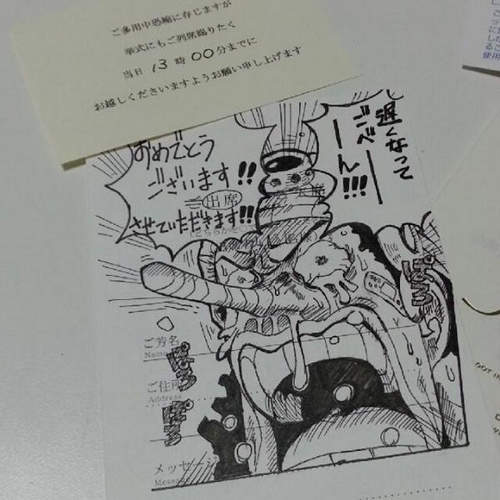 ご多用中恐縮に存じますが
挙式にもご列席賜りたく
当日 13時00分までに
お越しくださいますようお願い申し上げます
遅くなって
ごべーーん!!!
おめでとう
ございます!!
ご出席
させていただきます!!!
ぽろ
ご芳名
Name
ぽろ
ご住所
Address
ぽろ
メッセ
Messa
使用